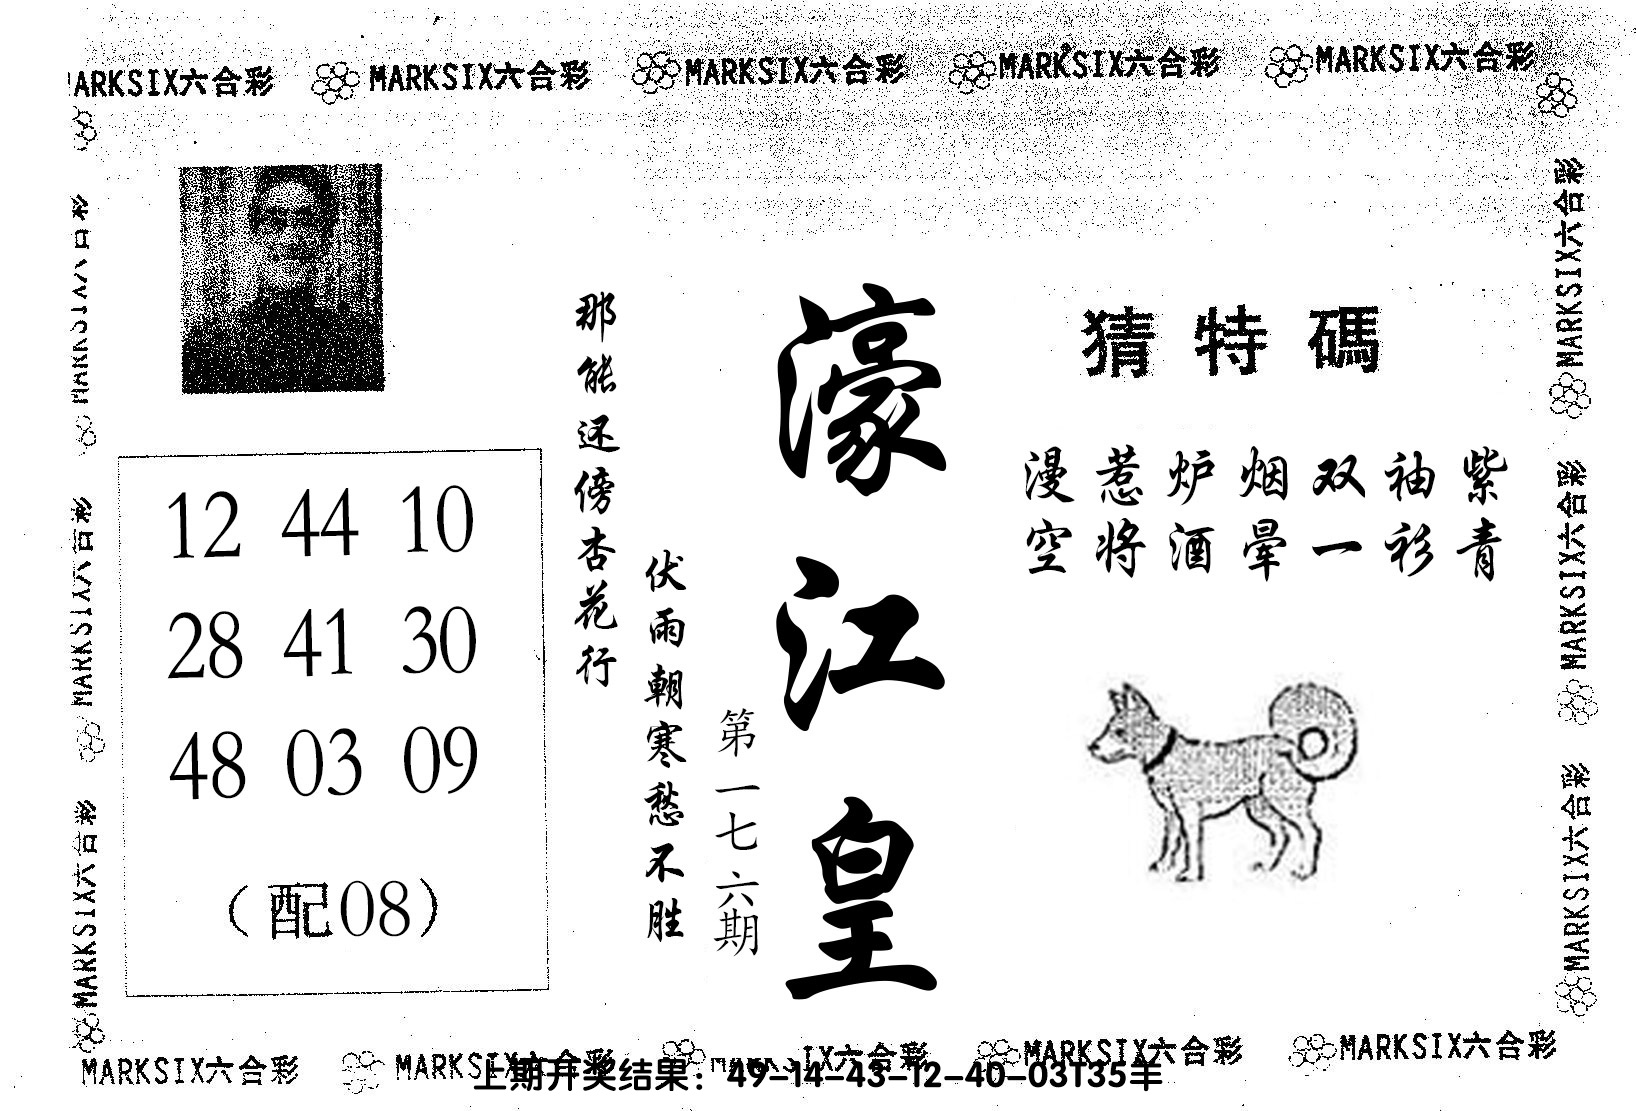 MARKSIX六合彩 MARKSIX六合彩 MARKSIX六合彩 MARKSIX六合彩
猜特碼
漫惹炉烟双袖紫
空将酒晕一衫青
濠江皇
第一七六期
伏雨朝寒愁不胜
那能还傍杏花行
12 44 10
28 41 30
48 03 09
（配08）
MARKSIX六合彩
MARKSIX六合彩
MARKSIX六合彩
MARKSIX六合彩
MARKSIX六合彩
MARKSIX六合彩 MARKSIX六合彩 MARKSIX六合彩 MARKSIX六合彩
上期开奖结果：49-14-43-12-40-03T35羊